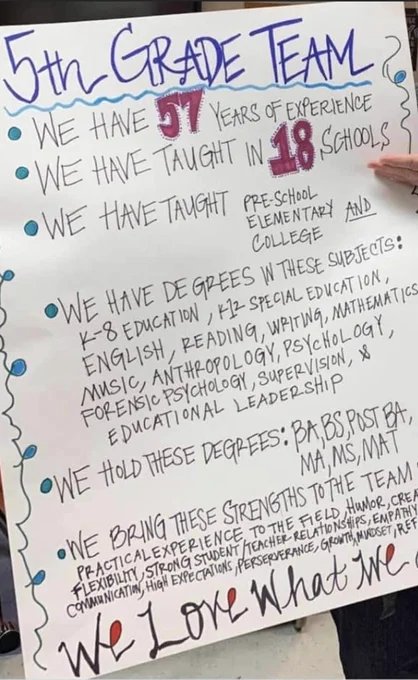 5th GRADE TEAM
WE HAVE 57 YEARS OF EXPERIENCE
WE HAVE TAUGHT IN 18 SCHOOLS
WE HAVE TAUGHT PRE-SCHOOL
ELEMENTARY AND
COLLEGE
WE HAVE DEGREES IN THESE SUBJECTS:
K-8 EDUCATION, K-12 SPECIAL EDUCATION,
ENGLISH, READING, WRITING, MATHEMATICS
MUSIC, ANTHROPOLOGY, PSYCHOLOGY,
FORENSIC PSYCHOLOGY, SUPERVISION, &
EDUCATIONAL LEADERSHIP
WE HOLD THESE DEGREES: BA, BS, POST BA,
MA, MS, MAT
WE BRING THESE STRENGTHS TO THE TEAM
PRACTICAL EXPERIENCE TO THE FIELD, HUMOR,
FLEXIBILITY, STRONG STUDENT/TEACHER RELATIONSHIPS, EMPATHY
COMMUNICATION, HIGH EXPECTATIONS, PERSERVERANCE, GROWTH MINDSET,
We Love What We